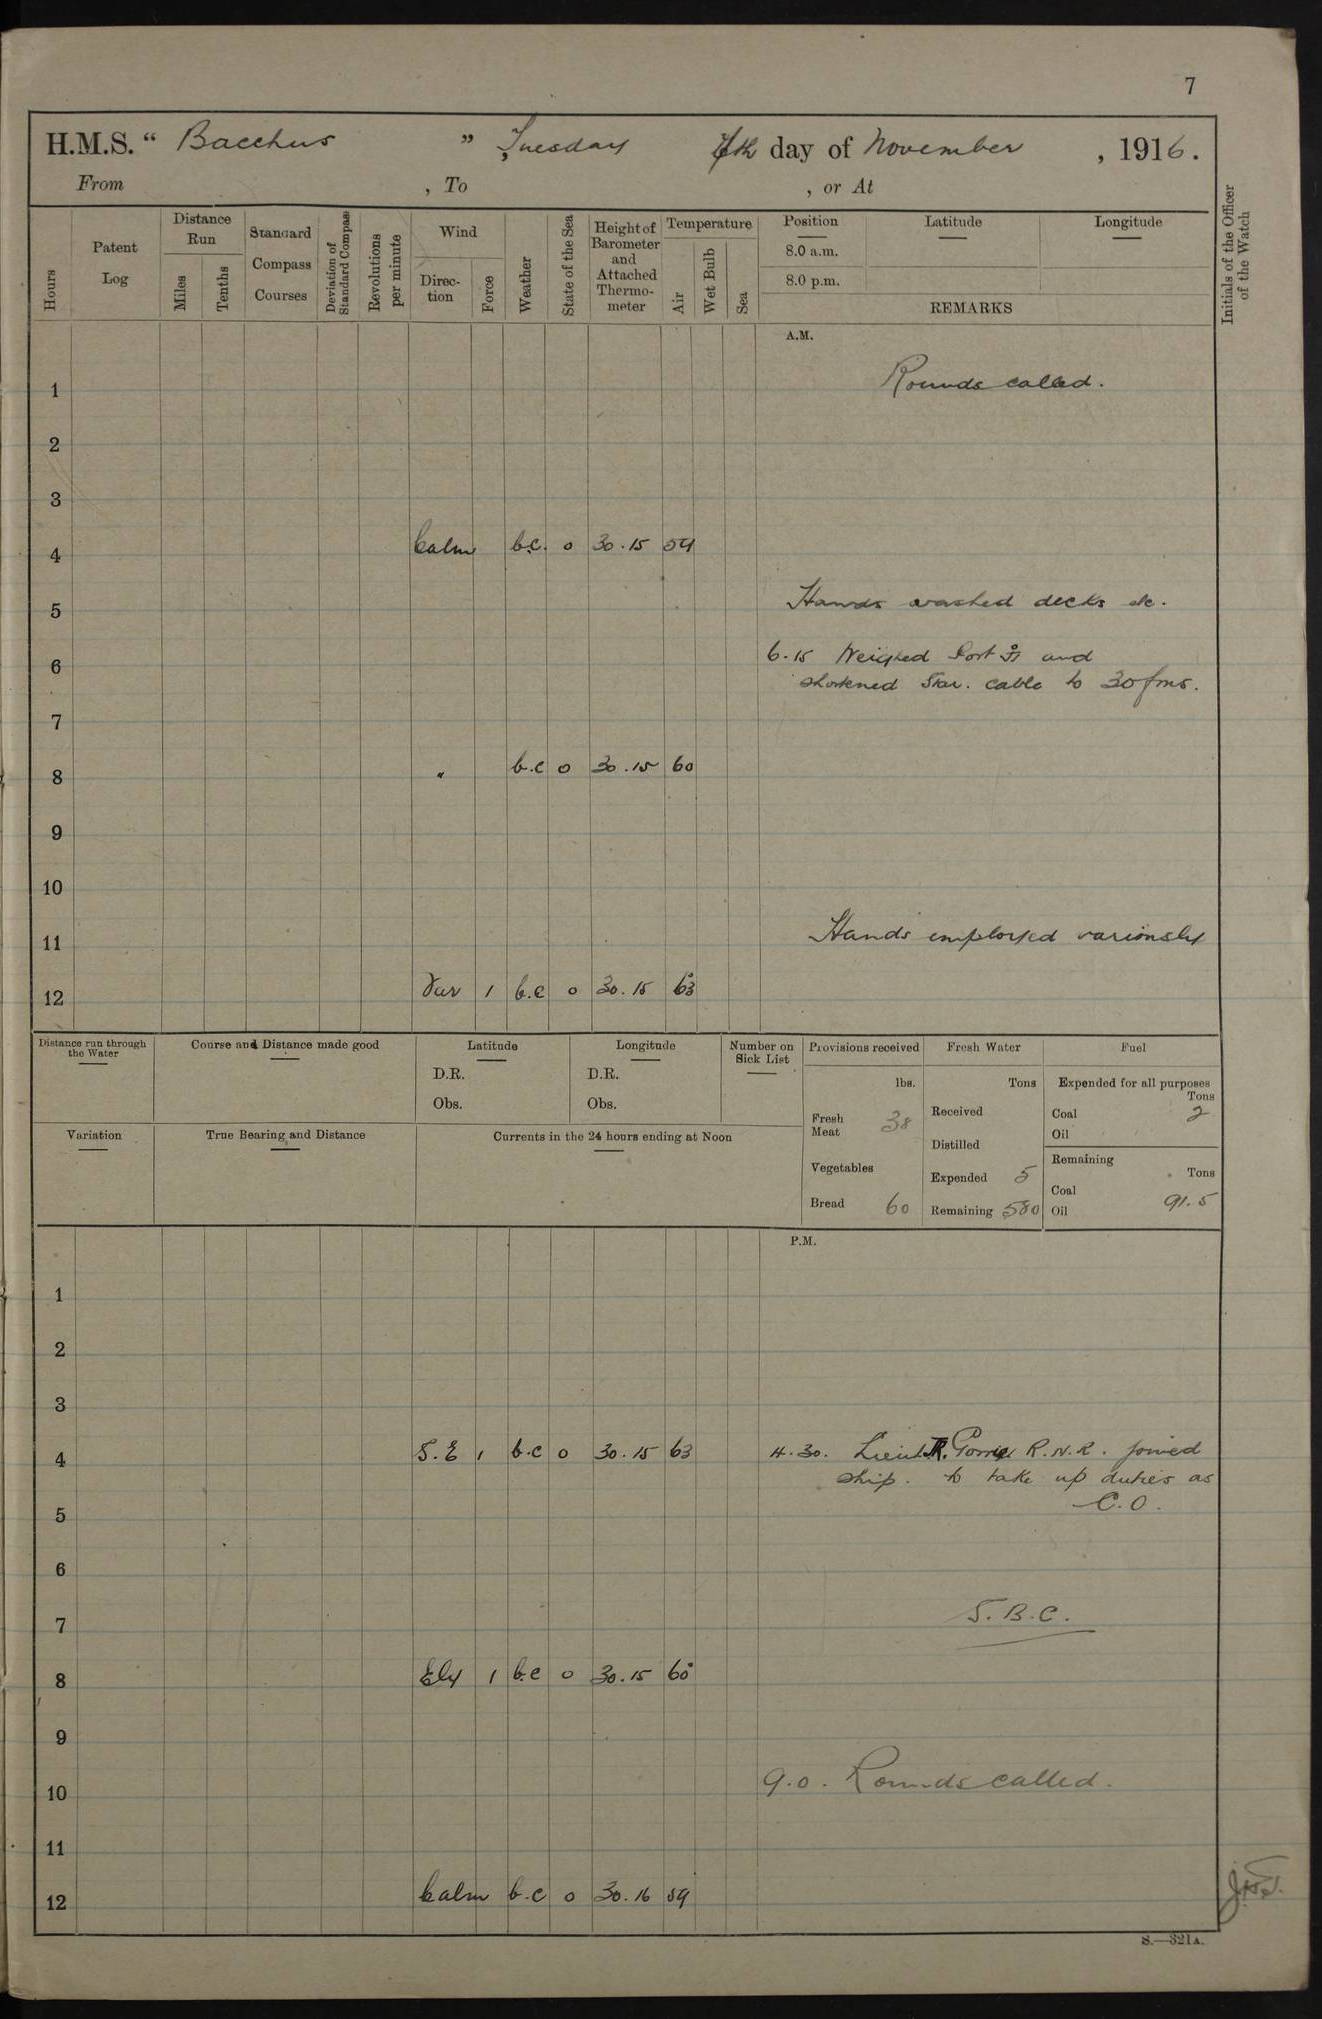 7
H.M.S. “ Bacchus ” Tuesday 7th day of November , 1916.
From , To , or At
Hours
Patent Log
Distance Run
Miles
Tenths
Standard Compass Courses
Deviation of Standard Compass
Revolutions per minute
Wind
Direction
Force
Weather
State of the Sea
Height of Barometer and Attached Thermometer
Temperature
Air
Wet Bulb
Sea
Position
8.0 a.m.
8.0 p.m.
Latitude
Longitude
REMARKS
Initials of the Officer of the Watch
A.M.
1 Rounds called.
2
3
4 Calm b.c. 0 30.15 54
5 Hands washed decks etc.
6 6.15 Weighed Port and
shortened Star. cable to 30 fms.
7
8 " b.c 0 30.15 60
9
10
11 Hands employed variously
12 Var 1 b.c 0 30.15 63
Distance run through the Water
Course and Distance made good
Latitude
D.R.
Obs.
Longitude
D.R.
Obs.
Number on Sick List
Provisions received
lbs.
Fresh Meat 38
Vegetables
Bread 60
Fresh Water
Tons
Received
Distilled
Expended 5
Remaining 580
Fuel
Expended for all purposes
Tons
Coal 2
Oil
Remaining
Tons
Coal 91.5
Oil
Variation
True Bearing and Distance
Currents in the 24 hours ending at Noon
P.M.
1
2
3
4 S.E 1 b.c 0 30.15 63 4.30. Lieut R. R.N.R. joined
ship. to take up duties as
C.O.
5
6
7 S.B.C.
8 Ely 1 b.c 0 30.15 60
9
10 9.0. Rounds called.
11
12 Calm b.c 0 30.16 59
S.—321A.